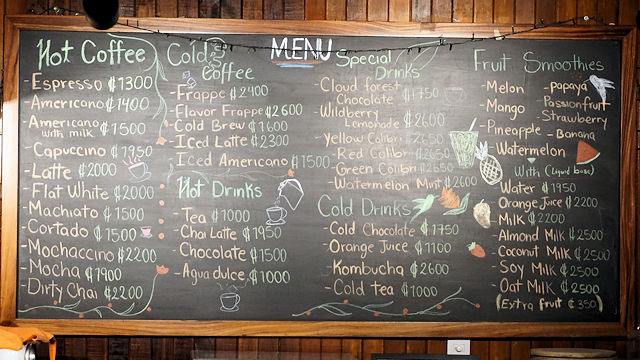 MENU
Hot Coffee
- Espresso ₡1300
- Americano ₡1400
- Americano
with milk ₡1500
- Capuccino ₡1950
- Latte ₡2000
- Flat White ₡2000
- Machiato ₡1500
- Cortado ₡1500
- Mochaccino ₡2200
- Mocha ₡1900
- Dirty Chai ₡2200
Cold
Coffee
- Frappe ₡2400
- Flavor Frappe ₡2600
- Cold Brew ₡1600
- Iced Latte ₡2300
- Iced Americano ₡1500
Hot Drinks
- Tea ₡1000
- Chai Latte ₡1950
- Chocolate ₡1500
- Agua dulce ₡1000
Special
Drinks
- Cloud forest
Chocolate ₡1750
- Wildberry
Lemonade ₡2600
- Yellow Colibri ₡2650
- Red Colibri ₡2650
- Green Colibri ₡2650
- Watermelon Mint ₡2600
Cold Drinks
- Cold Chocolate ₡1750
- Orange Juice ₡1100
- Kombucha ₡2600
- Cold tea ₡1000
Fruit Smoothies
- Melon
- Mango
- Pineapple
- Watermelon
- papaya
- Passionfruit
- Strawberry
- Banana
With (Liquid base)
- Water ₡1950
- Orange Juice ₡2200
- Milk ₡2200
- Almond Milk ₡2500
- Coconut Milk ₡2500
- Soy Milk ₡2500
- Oat Milk ₡2500
(Extra fruit ₡350)